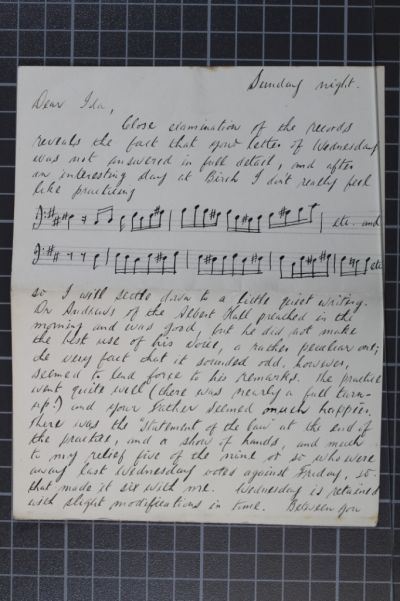 Sunday night.
Dear Ida,
Close examination of the records
reveals the fact that your letter of Wednesday
was not answered in full detail, and after
an interesting day at Birch I don't really feel
like practising
etc. and
etc
so I will settle down to a little quiet writing.
Dr Andrews of the Albert Hall preached in the
morning and was good, but he did not make
the best use of his voice, a rather peculiar one;
the very fact that it sounded odd, however,
seemed to lend force to his remarks. The practice
went quite well (there was nearly a full turn-
up!) and your father seemed much happier.
There was the "statement of the case" at the end of
the practice, and a show of hands, and much
to my relief five of the nine or so who were
away last Wednesday voted against Friday, so
that made it six with me. Wednesday is retained
with slight modifications in time. Between you